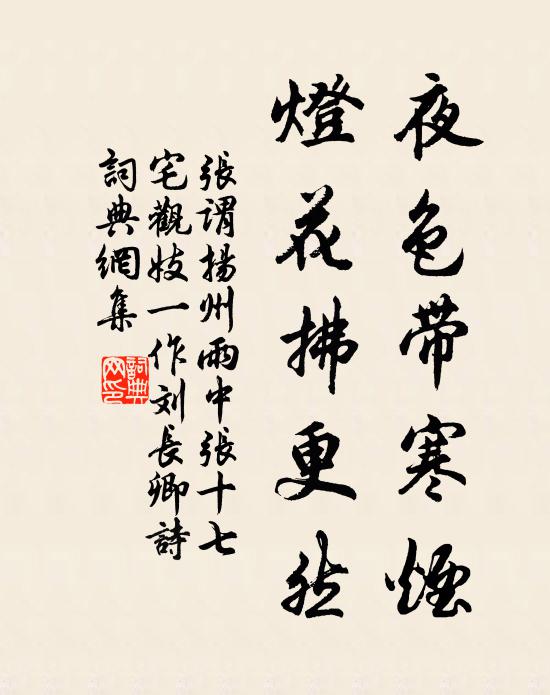 夜色帶寒煙
燈花拂更然
張謂揚州雨中張十七
宅觀妓一作刘長卿詩
詞典網集
詞典網印